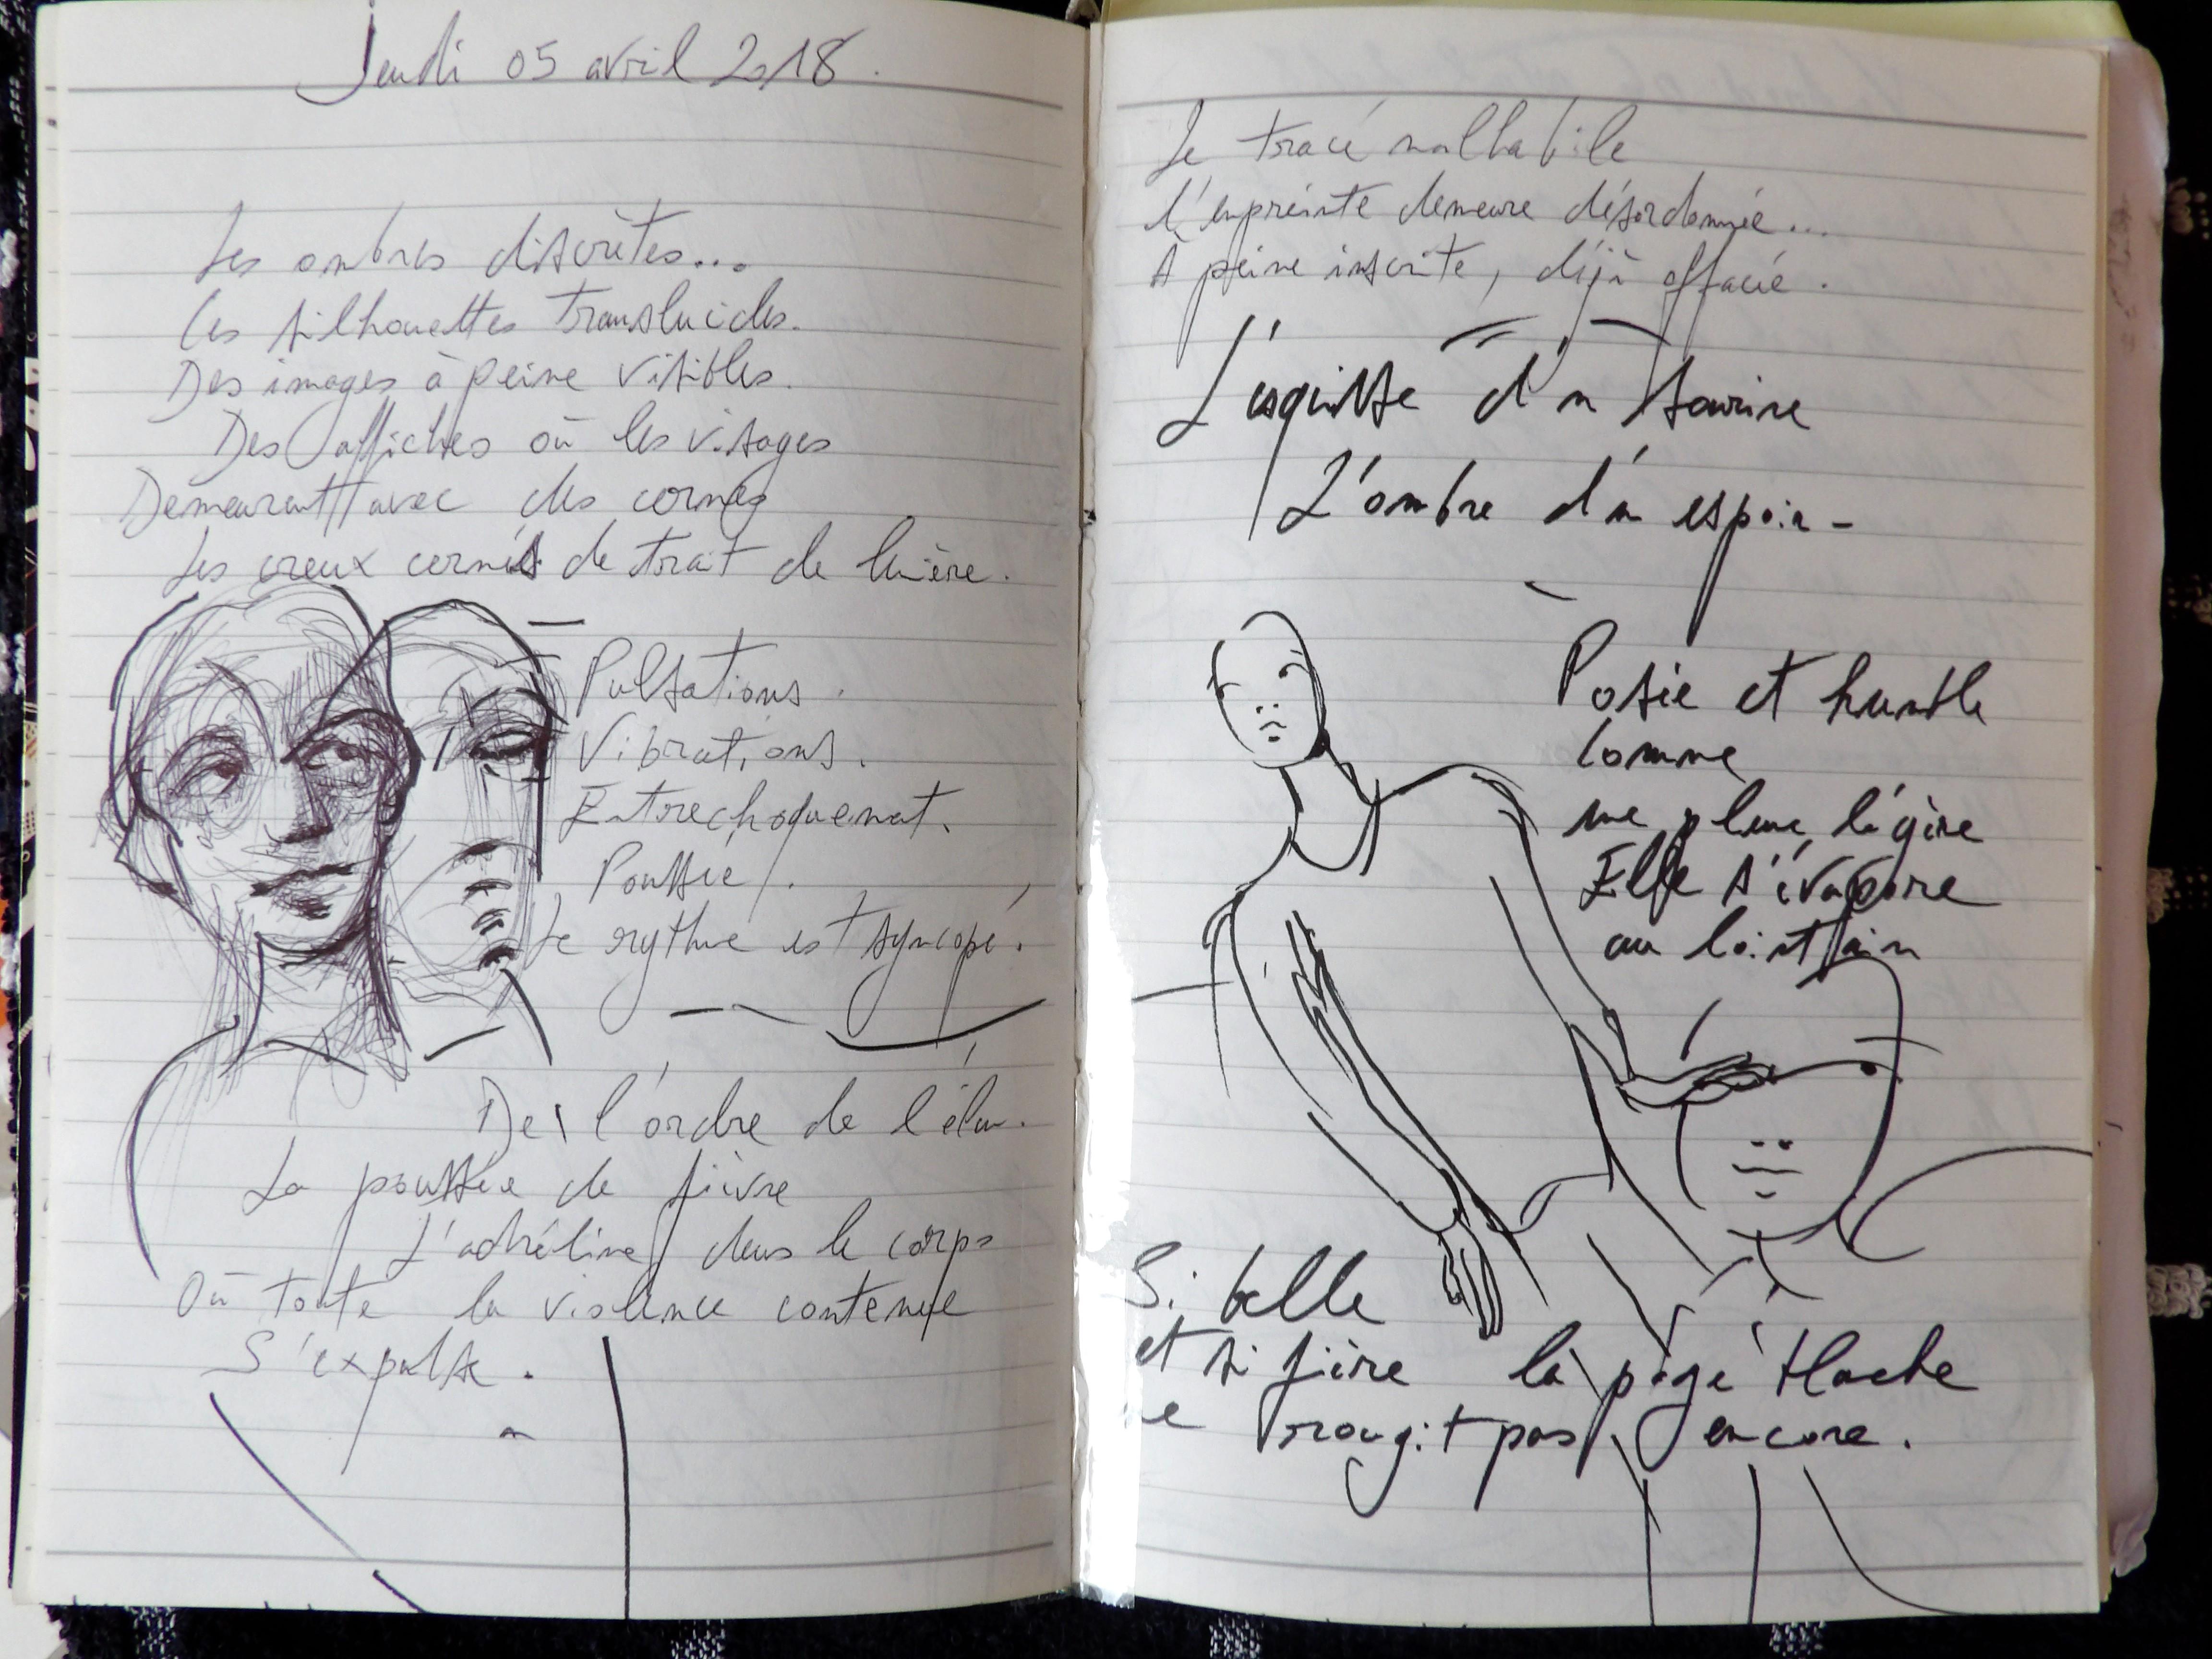 Jeudi 05 avril 2018.
Les ombres discrètes...
Les silhouettes translucides.
Des images à peine visibles.
Des affiches où les visages
Demeurent avec des cornes
Les creux cernés de trait de lumière.
Pulsations.
Vibrations.
Entrechoquement.
Poussée.
Le rythme est syncopé.
De l'ordre de l'élan.
La poussée de fièvre
L'adréline dans le corps
Où toute la violence contenue
S'expulse.
Le tracé malhabile
L'empreinte demeure désordonnée...
A peine inscrite, déjà effacée.
L'esquisse d'un sourire
L'ombre d'un espoir-
Posée et humble
Comme
une plume légère
Elle s'évapore
au lointain
Si belle
et si fière la page blanche
ne rougit pas encore.